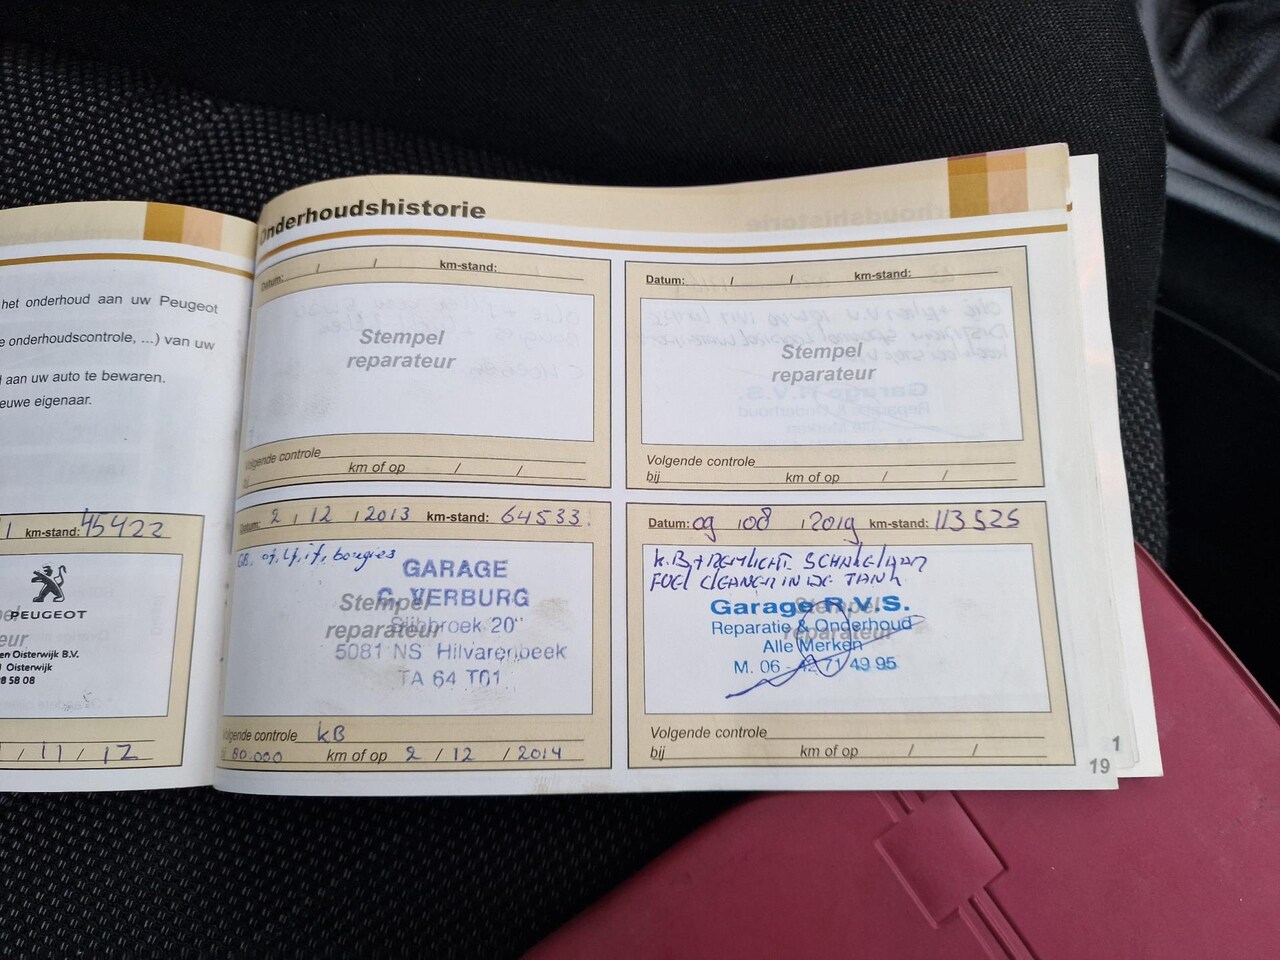 het onderhoud aan uw Peugeot
e onderhoudscontrole, ...) van uw
aan uw auto te bewaren.
euwe eigenaar.
km-stand: 45422
PEUGEOT
eur
en Oisterwijk B.V.
Oisterwijk
8 58 08
/ 11 / 12
Onderhoudshistorie
Datum: / / km-stand:
Stempel
reparateur
Volgende controle
bij km of op / /
Datum: / / km-stand:
Stempel
reparateur
Volgende controle
bij km of op / /
Datum: 2 / 12 / 2013 km-stand: 64533.
GB. of, Lf, if, bougies
GARAGE
C. VERBURG
Stempel
reparateur
20"
5081 NS Hilvarenbeek
TA 64 T01
Volgende controle kB
80.000 km of op 2 / 12 / 2014
Datum: 09 / 08 / 2019 km-stand: 113525
K.B, + REMLICHT SCHAKELAAR
FUEL CLEANER IN DE TANK
Garage R.V.S.
Stempel
Reparatie & Onderhoud
reparateur
Alle Merken
M. 06 - 42 71 49 95
Volgende controle
bij km of op / /
1
19